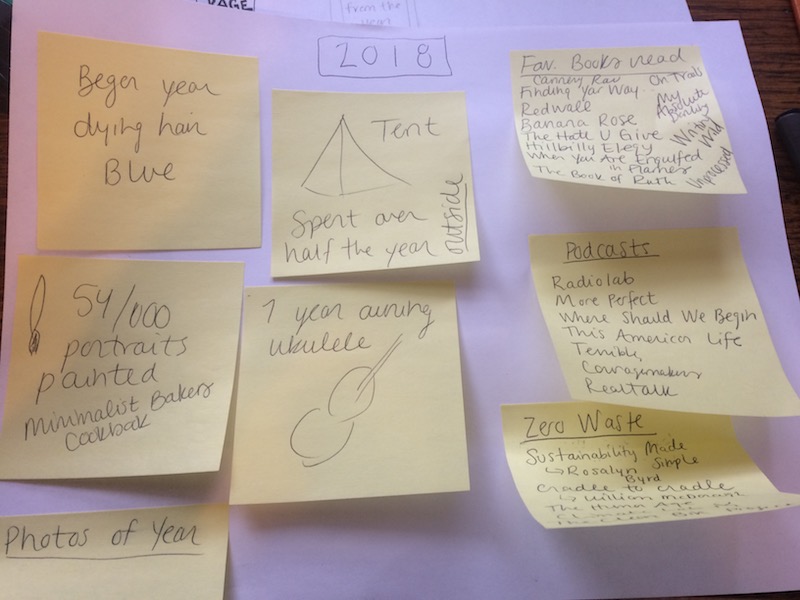 PAGE
from the
year
2018
Began year
dying hair
Blue
Tent
Spent over
half the year
outside
54/000
portraits
painted
Minimalist Bakers
Cookbook
1 year owning
ukulele
Photos of Year
Fav. Books read
Cannery Row
Finding Yar Way
Redwall
Banana Rose
The Hate U Give
Hillbilly Elegy
When You Are Engulfed
in Flames
The Book of Ruth
On Trails
My
Absolute
Darling
Wild
Unprocessed
Podcasts
Radiolab
More Perfect
Where Should We Begin
This American Life
Terrible,
Couragemakers
Real Talk
Zero Waste
Sustainability Made
Simple
↳ Rosalyn
Byrd
Cradle to Cradle
↳ William McDonough
The Human Age